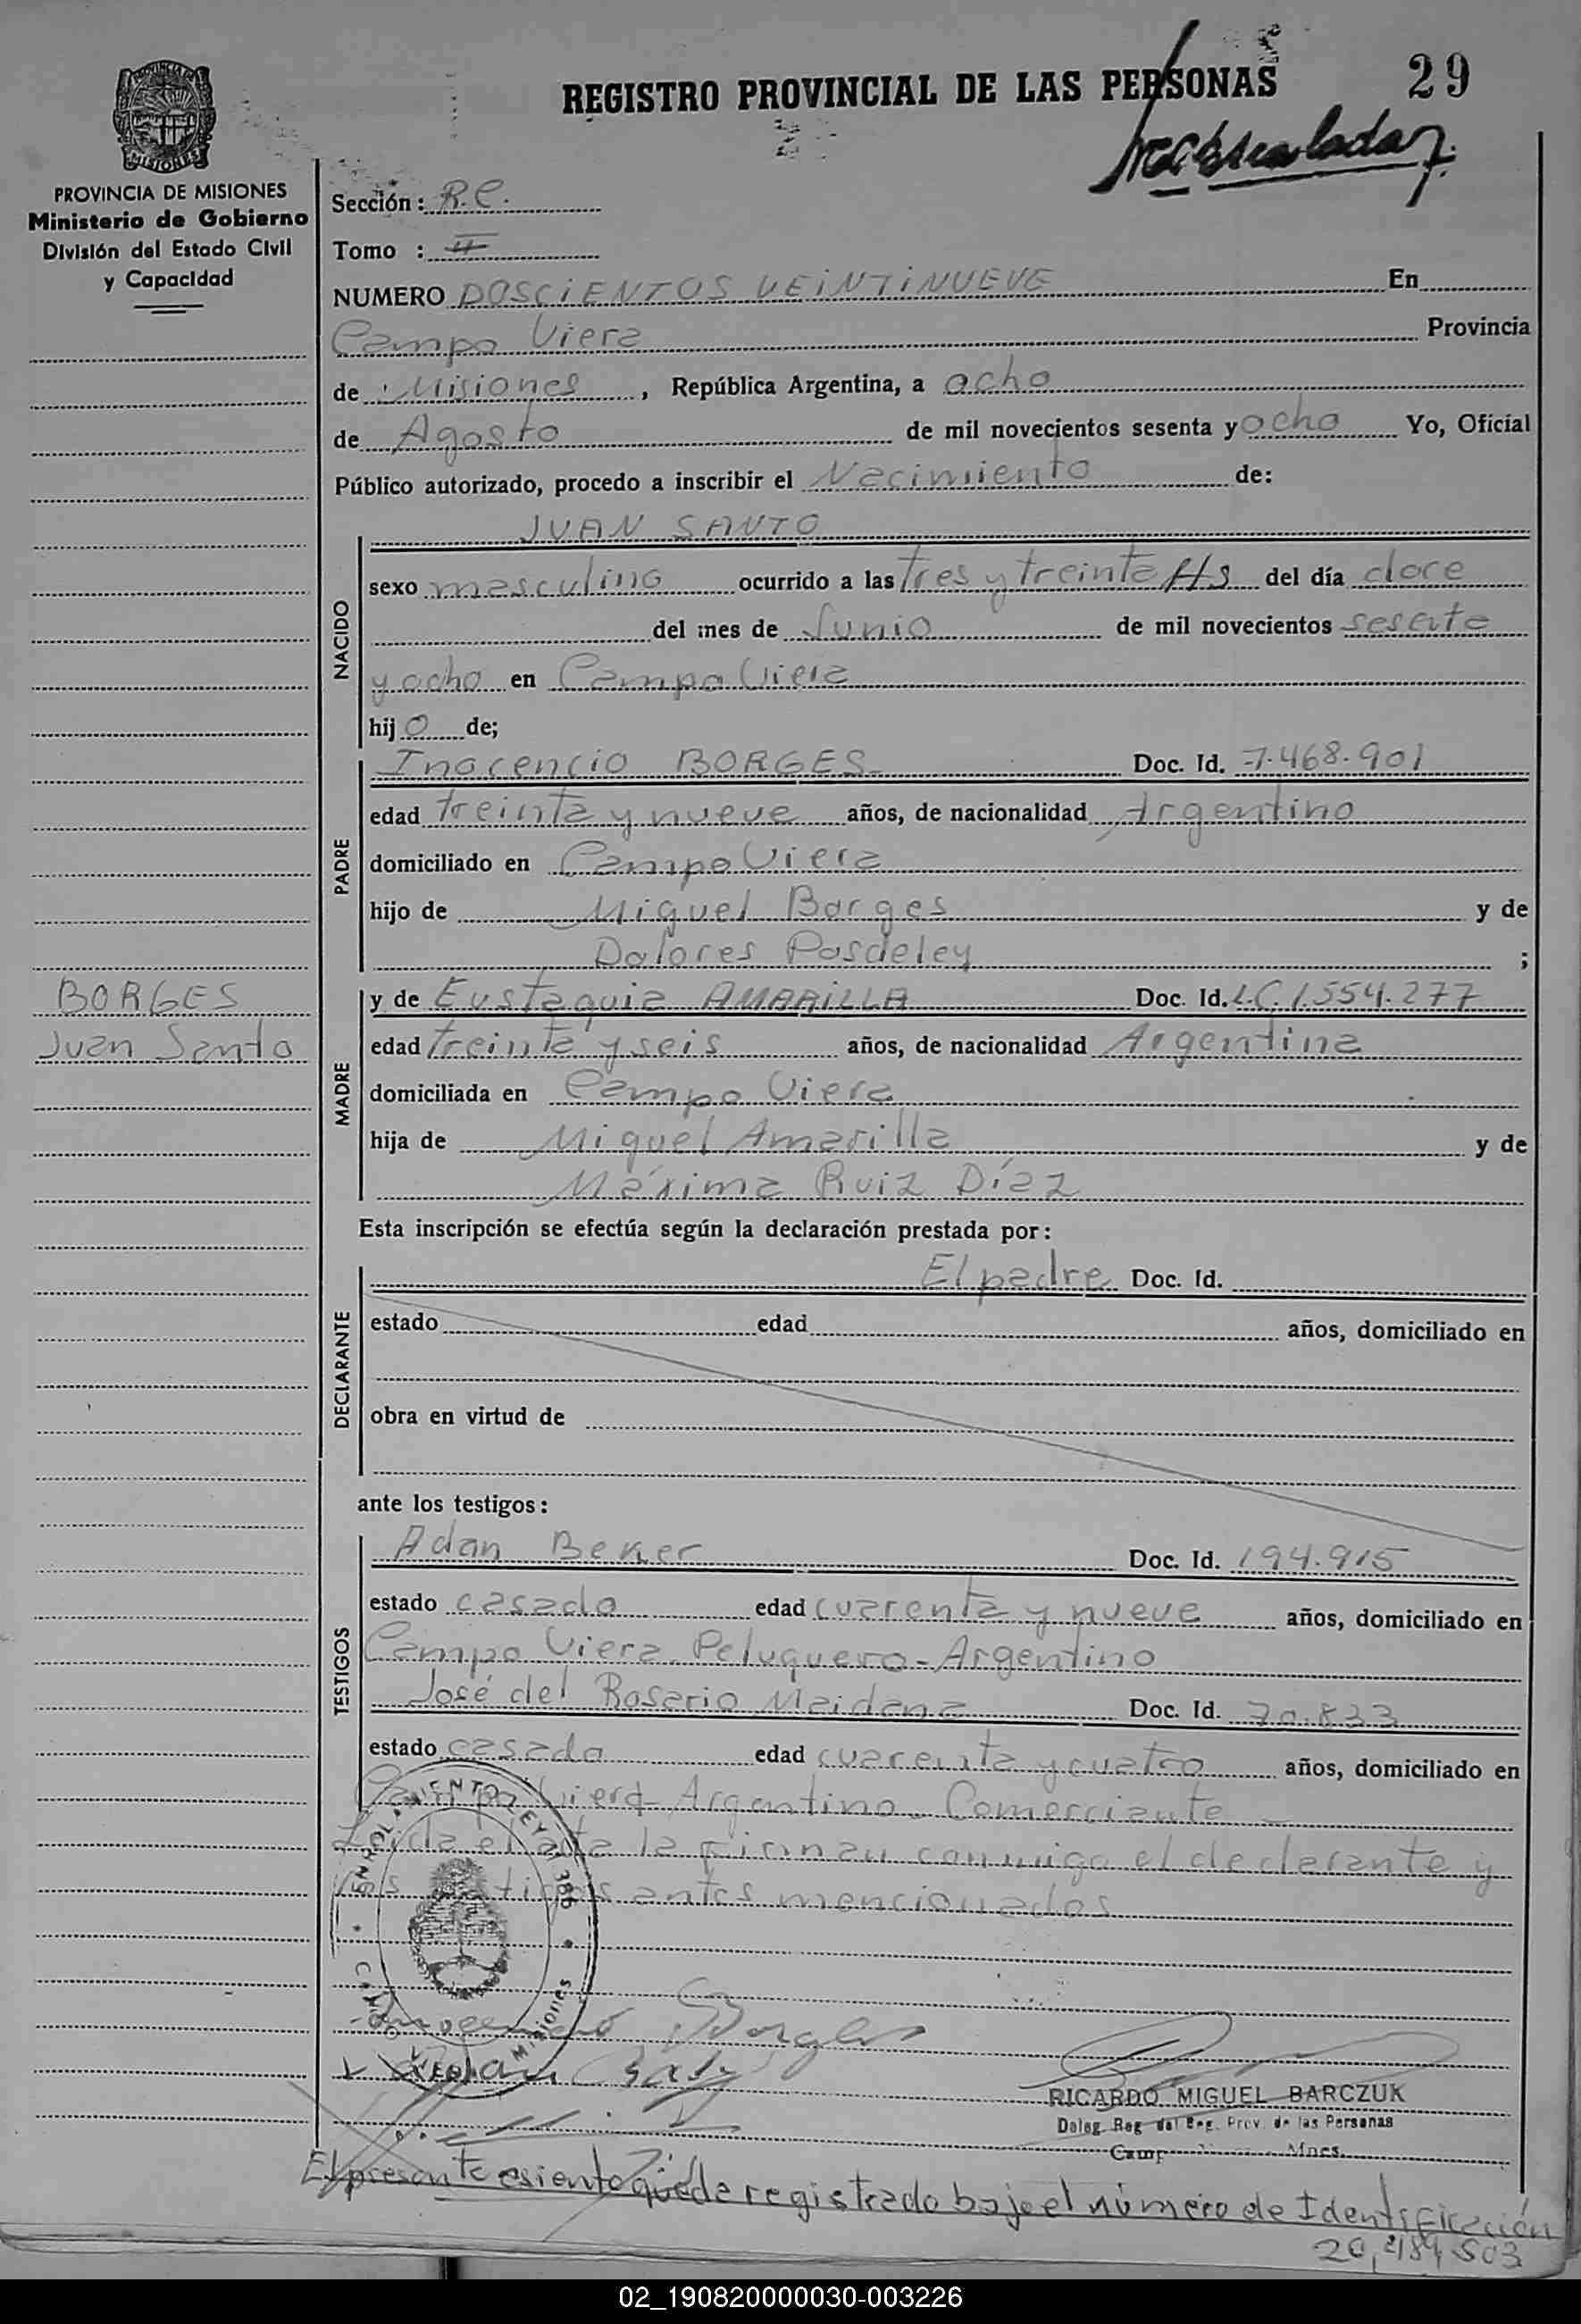 REGISTRO PROVINCIAL DE LAS PERSONAS
29
MISIONES
PROVINCIA DE MISIONES
Ministerio de Gobierno
División del Estado Civil
y Capacidad
Sección: R.C.
Tomo : II
NUMERO DOSCIENTOS VEINTINUEVE En
Campo Viera Provincia
de Misiones, República Argentina, a ocho
de Agosto de mil novecientos sesenta y ocho Yo, Oficial
Público autorizado, procedo a inscribir el Nacimiento de:
NACIDO
JUAN SANTO
sexo masculino ocurrido a las tres y treinta Hs del día doce
del mes de Junio de mil novecientos sesenta
y ocho en Campo Viera
hijo de;
PADRE
Inocencio BORGES Doc. Id. 7.468.901
edad treinta y nueve años, de nacionalidad Argentino
domiciliado en Campo Viera
hijo de Miguel Borges y de
Dolores Posdeley ;
BORGES
Juan Santo
MADRE
y de Eustaquia AMARILLA Doc. Id. L.C.1.554.277
edad treinta y seis años, de nacionalidad Argentina
domiciliada en Campo Viera
hija de Miguel Amarilla y de
Máxima Ruiz Díaz
Esta inscripción se efectúa según la declaración prestada por:
DECLARANTE
El padre Doc. Id.
estado edad años, domiciliado en
obra en virtud de
ante los testigos:
TESTIGOS
Adan Beker Doc. Id. 194.915
estado casado edad cuarenta y nueve años, domiciliado en
Campo Viera. Peluquero-Argentino
José del Rosario Maidana Doc. Id. 70.833
estado casado edad cuarenta y cuatro años, domiciliado en
Campo Viera- Argentino- Comerciante
Leida el acta la firman conmigo el declarante y
los testigos antes mencionados
Borges
RICARDO MIGUEL BARCZUK
Deleg. Reg. del Reg. Prov. de las Personas
El presente asiento queda registrado bajo el número de Identificación
20,489,503
02_190820000030-003226